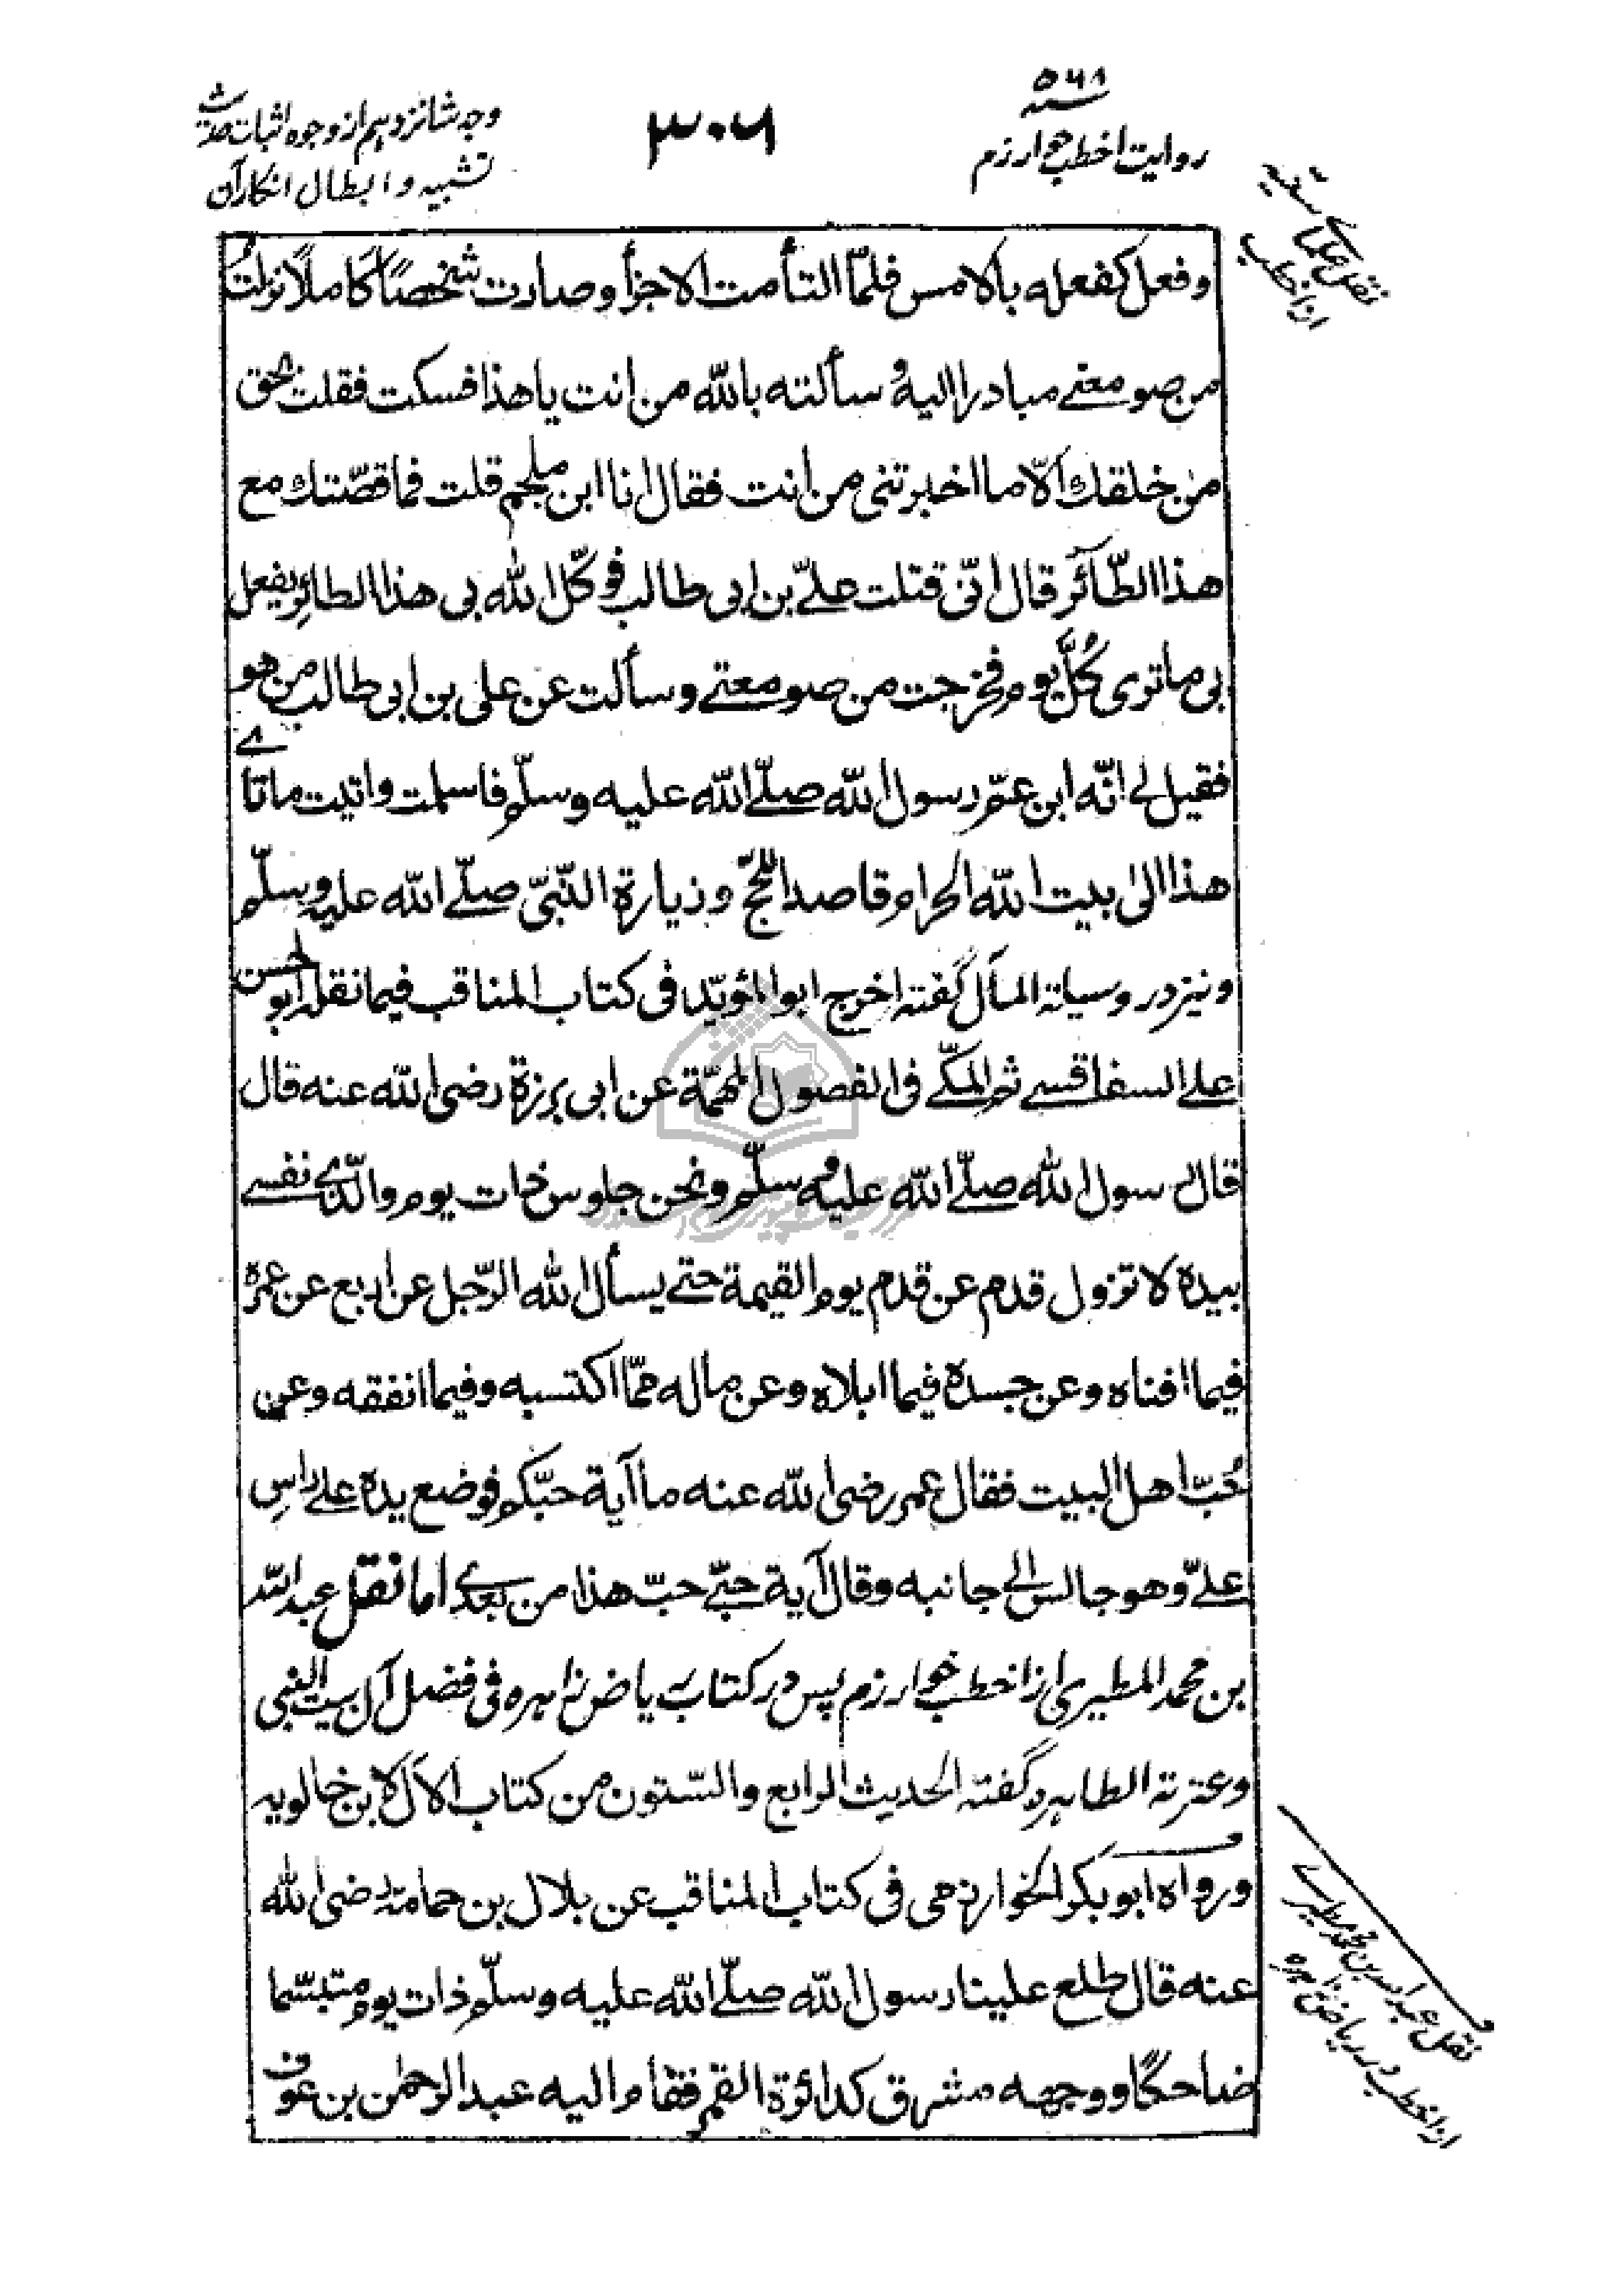 ۵۶۸
سنه
روایت اخطب خوارزم
۳۰۶
وجه شانزدهم از وجوه اثبات حدیث
تشبیه و ابطال انکار آن
نقل علمای سنیه
از اخطب
وفعل كفعله بالامس فلمّا التأمت الاجزأ وصارت شخصًا كاملًا نزلتُ
من صومعتی مبادرا الیه وسألته بالله من انت یا هذا فسکت فقلت بحق
من خلقك الّا ما اخبرتنی من انت فقال انا ابن ملجم قلت فما قصّتك مع
هذا الطّائر قال انّی قتلت علیّ بن ابی طالب فوکّل الله بی هذا الطائر یفعل
بی ما تری کُلَّ یوم فخرجت من صومعتی وسألت عن علی بن ابی طالب من هو
فقیل لی انّه ابن عمّ رسول الله صلّی الله علیه وسلّم فاسلمت واتیت ماتاے
هذا الی بیت الله الحرام قاصدا للحجّ وزیارة النّبیّ صلّی الله علیه وسلّم
ونیز در وسیلة المآل گفته اخرج ابو المؤیّد فی کتاب المناقب فیما نقله ابو الحسن
علی السفاقسی ثم المکّی فی الفصول المهمّة عن ابی برزة رضی الله عنه قال
قال رسول الله صلّی الله علیه وسلّم ونحن جلوس ذات یوم والّذی نفسی
بیده لا تزول قدم عن قدم یوم القیمة حتی یسأل الله الرّجل عن اربع عن عمره
فیما افناه وعن جسده فیما ابلاه وعن ماله ممّا اکتسبه وفیما انفقه وعن
حُبّ اهل البیت فقال عمر رضی الله عنه ما آیة حبّکم فوضع یده علی راسِ
علیّ وهو جالس الی جانبه وقال آیة حبّی حبّ هذا من بعدی اما نقل عبد الله
بن محمد المطیری از اخطب خوارزم پس در کتاب ریاض زاهره فی فضل آل بیت النبی
وعترته الطاهره گفته الحدیث الرابع والسّتون من کتاب الآل لابن خالویه
ورواه ابو بکر الخوارزمی فی کتاب المناقب عن بلال بن حمامة رضی الله
عنه قال طلع علینا رسول الله صلّی الله علیه وسلّم ذات یوم متبسّما
ضاحکًا ووجهه مشرق کدائرة القمر فقام الیه عبد الرحمن بن عوف
نقل عبد الله بن محمد مطیرے
از اخطب در ریاض زاهره